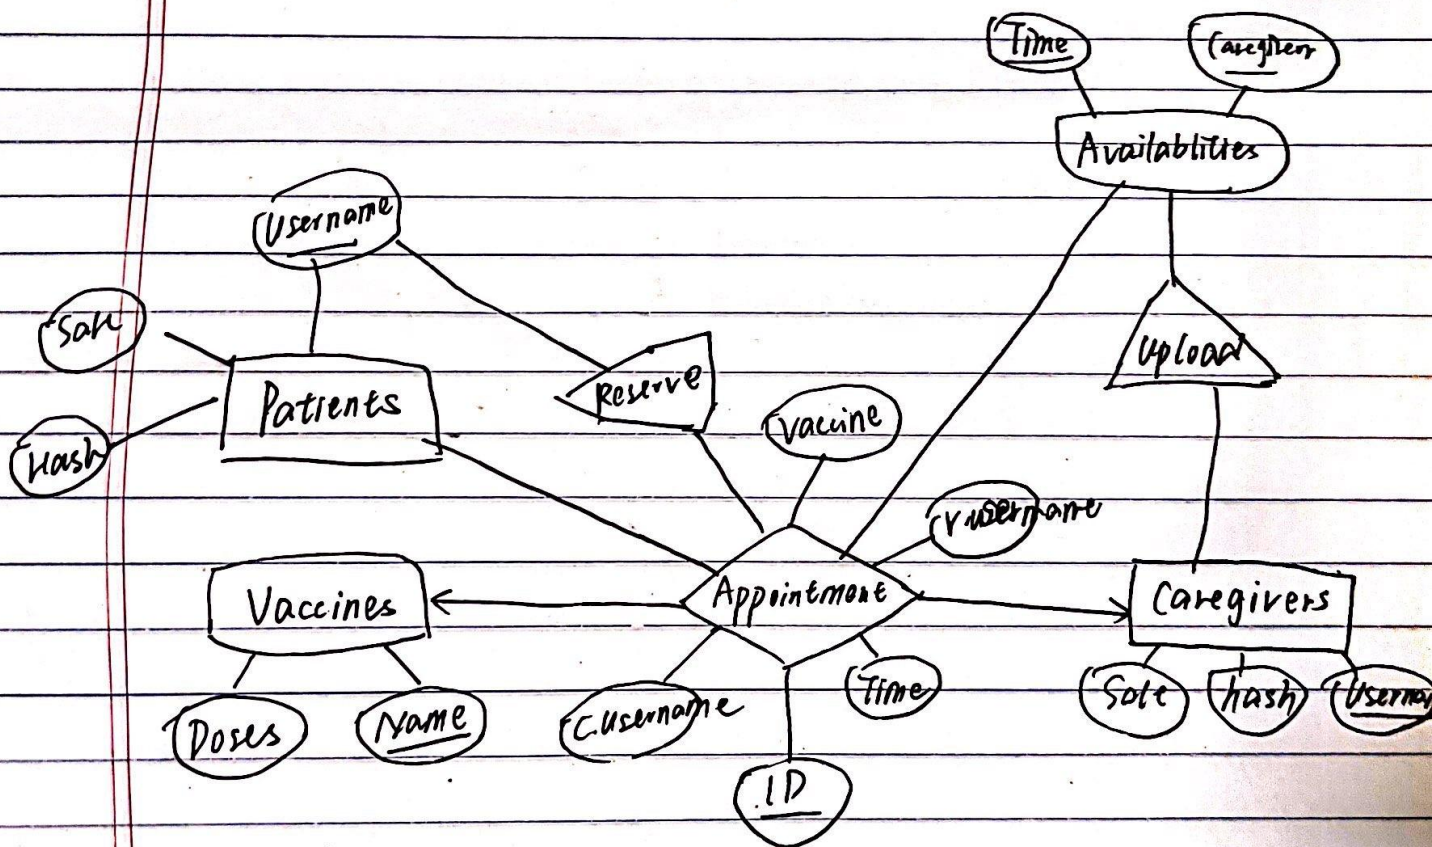 Time
Caregivers
Availablities
Username
Salt
Patients
Hash
Reserve
Upload
Vaccine
Vaccines
Appointment
Caregivers
Doses
Name
C.username
Time
ID
Salt
hash